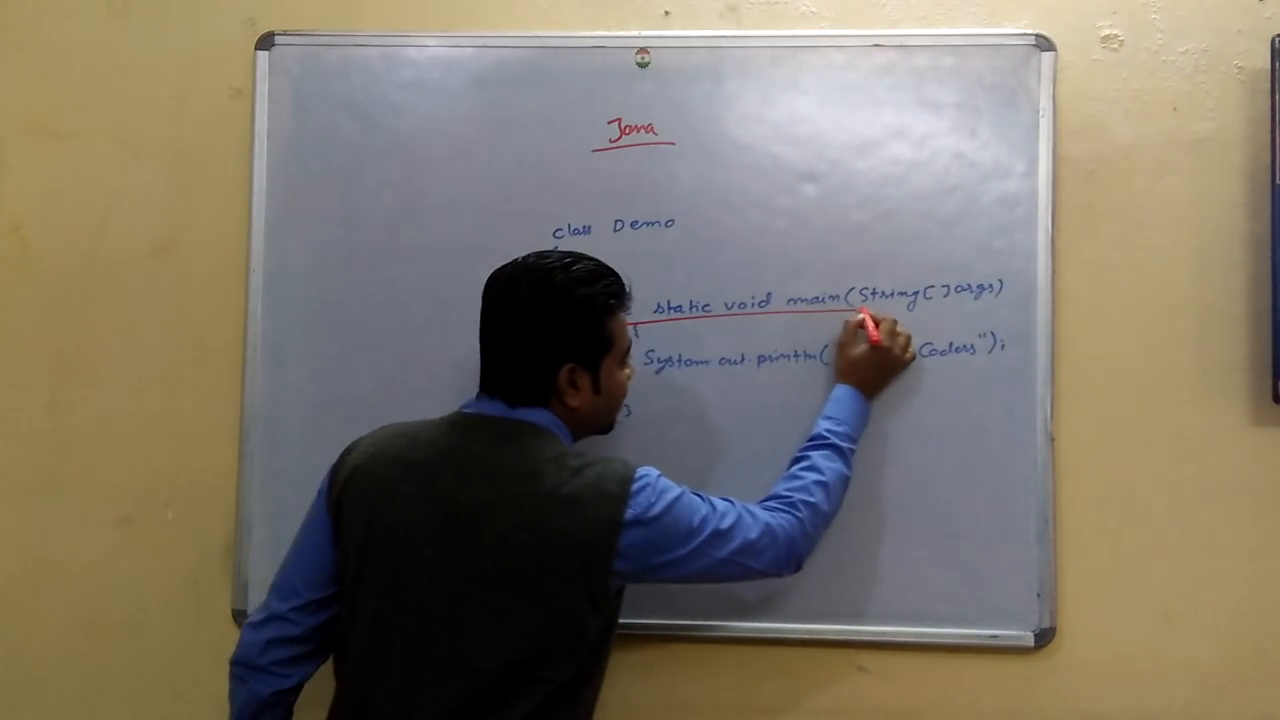 Java
class Demo
static void main(String[]args)
{
System.out.println( Coders");
}